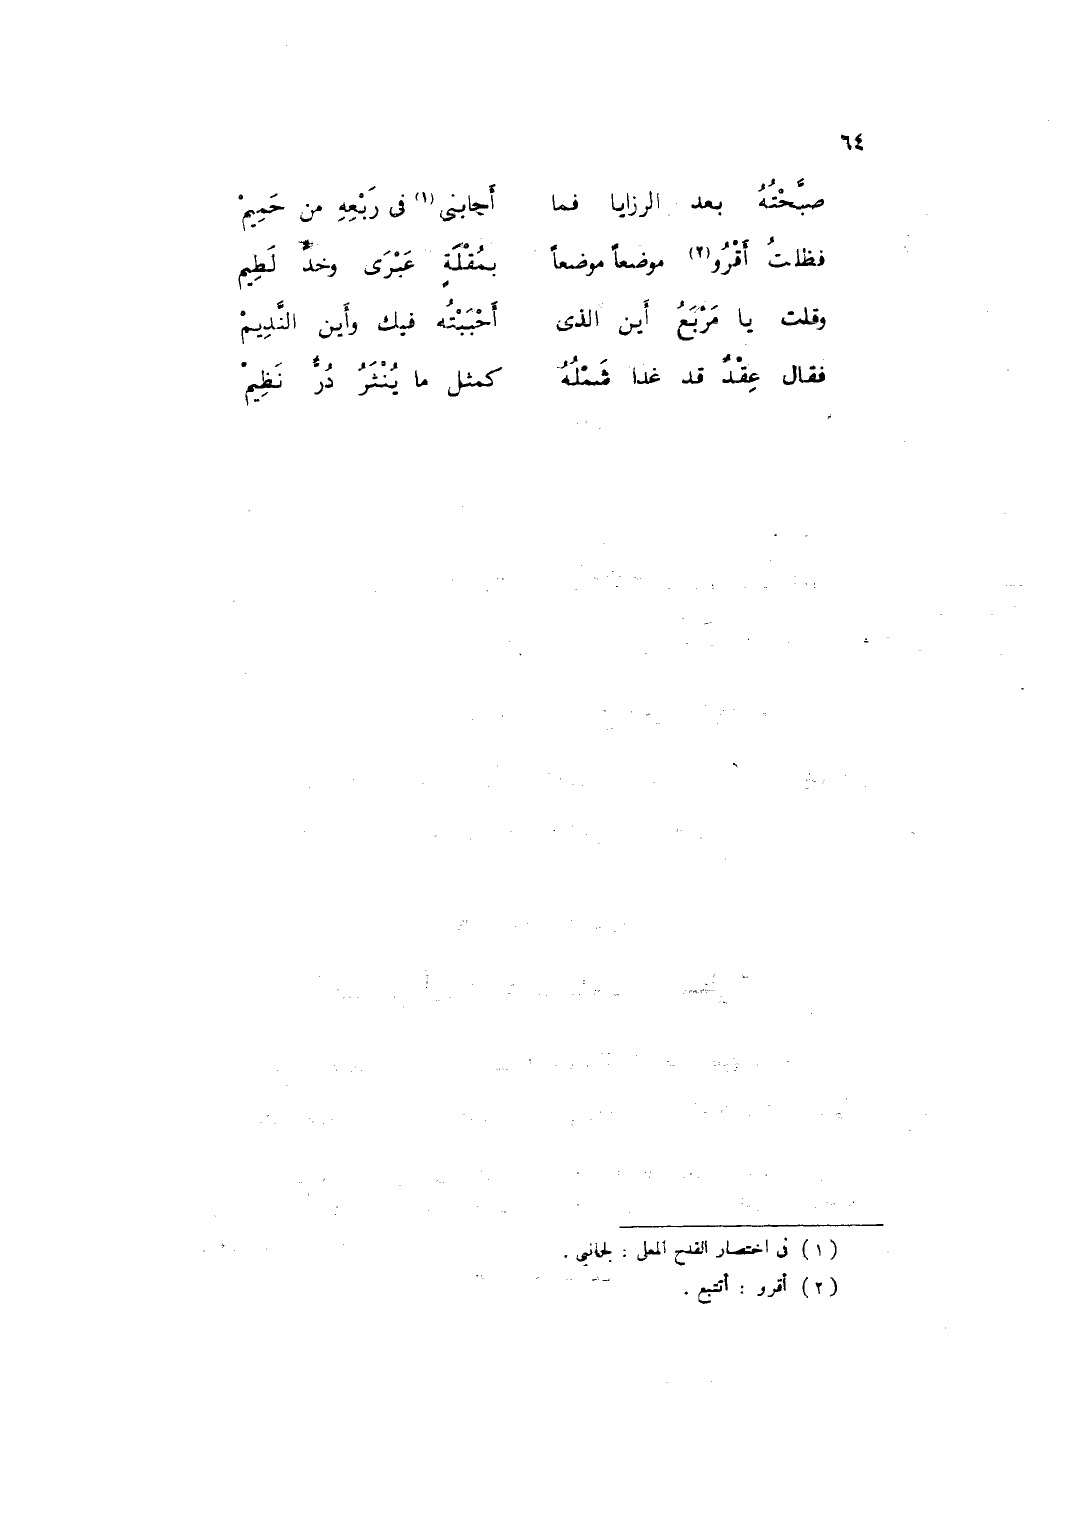 ٦٤
صبَّحْتُهُ بعد الرزايا فما أجابنى (١) فى رَبْعِهِ من حَمِيمْ
فظلتُ أقْرُو (٢) موضعاً موضعاً بمُقْلَةٍ عَبْرَى وخدٍّ لَطِيم
وقلت يا مَرْبَعُ أَين الذى أحْبَبْتُه فيك وأَين النَّدِيمْ
فقال عِقْدٌ قد غدا شَمْلُهُ كمثل ما يُنْثَرُ دُرٌّ نَظِيمْ
(١) فى اختصار القدح المعلى : لجانبي .
(٢) أقرو : أتتبع .